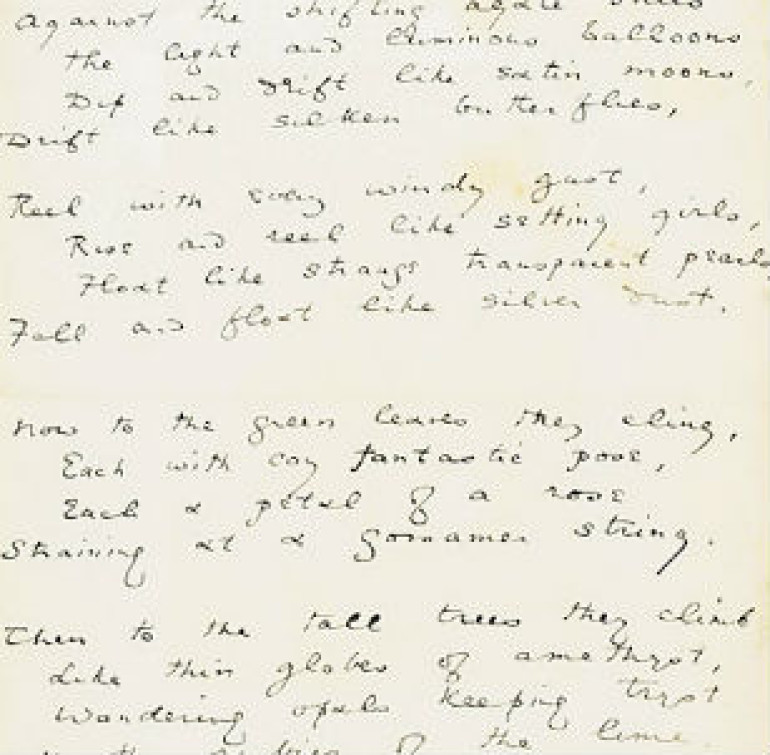 Against the shifting agate skies
The light and luminous balloons
Dip and Drift like satin moons,
Drift like silken butterflies,
Reel with every windy gust,
Rise and reel like setting girls,
Float like strange transparent pearls
Fall and float like silver dust.
Now to the green leaves they cling,
Each with coy fantastic pose,
Each a petal of a rose
Straining at a gossamer string.
Then to the tall trees they climb
Like thin globes of amethyst,
Wandering opals keeping tryst
of the lime